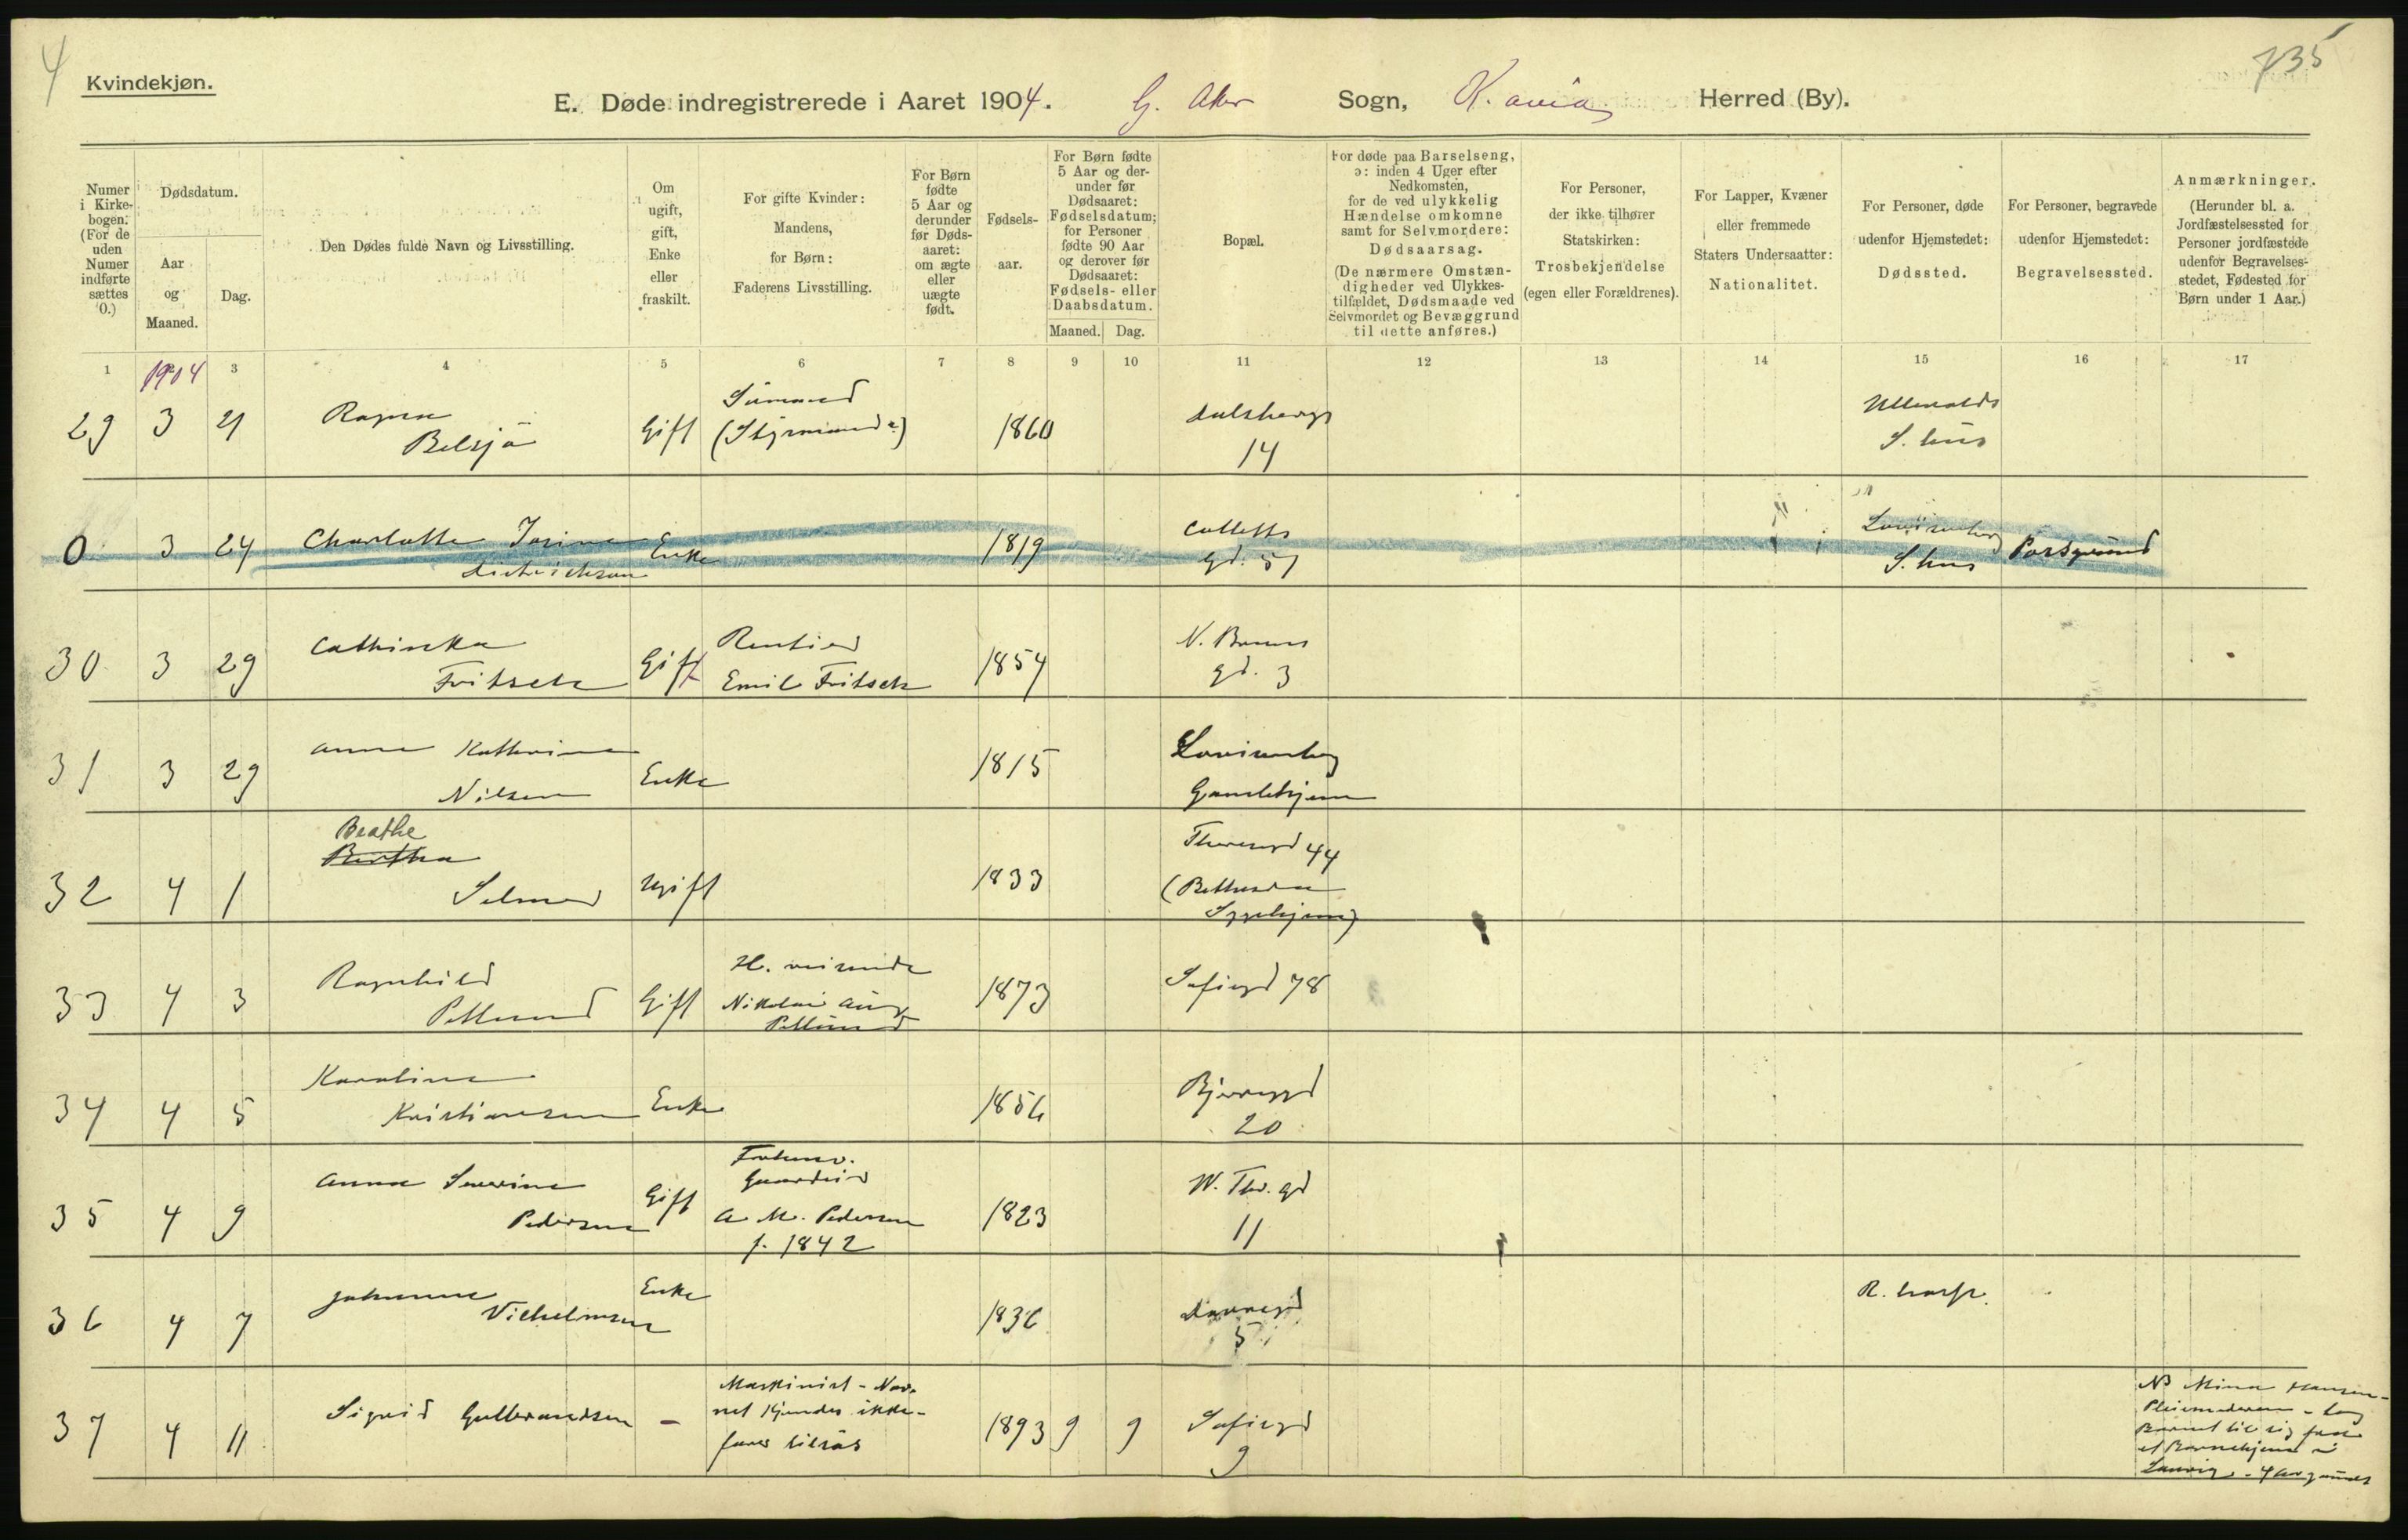 4
735
Kvindekjøn.
E. Døde indregistrerede i Aaret 1904. G. Aker Sogn, K.ania Herred (By).
Numer i Kirkebogen. (For de uden Numer indførte sættes 0.)
Dødsdatum.
Aar og Maaned.
Dag.
Den Dødes fulde Navn og Livsstilling.
Om ugift, gift, Enke eller fraskilt.
For gifte Kvinder: Mandens, for Børn: Faderens Livsstilling.
For Børn fødte 5 Aar og derunder før Dødsaaret: om ægte eller uægte født.
Fødselsaar.
For Børn fødte 5 Aar og derunder før Dødsaaret: Fødselsdatum; for Personer fødte 90 Aar og derover før Dødsaaret: Fødsels- eller Daabsdatum.
Maaned. Dag.
Bopæl.
For døde paa Barselseng, ɔ: inden 4 Uger efter Nedkomsten, for de ved ulykkelig Hændelse omkomne samt for Selvmordere: Dødsaarsag. (De nærmere Omstændigheder ved Ulykkestilfældet, Dødsmaade ved Selvmordet og Bevæggrund til dette anføres.)
For Personer, der ikke tilhører Statskirken: Trosbekjendelse (egen eller Forældrenes).
For Lapper, Kvæner eller fremmede Staters Undersaatter: Nationalitet.
For Personer, døde udenfor Hjemstedet: Dødssted.
For Personer, begravede udenfor Hjemstedet: Begravelsessted.
Anmærkninger. (Herunder bl. a. Jordfæstelsessted for Personer jordfæstede udenfor Begravelsesstedet, Fødested for Børn under 1 Aar.)
1 1904 3 4 5 6 7 8 9 10 11 12 13 14 15 16 17
29 3 21 Ragna Belsjö Gift Sümand (Styrmand?) 1860 14 Ullevolds S. hus
0 3 24 Charlotte Josine Dietrichson Enke 1819 Colletts Gd. 51 Lovisenberg S. hus Porsgrund
30 3 29 Cathinka Fritsch Gift Rentier Emil Fritsch 1854 gd. 3
31 3 29 Anna Kathrine Nilsen Enke 1815 Lovisenberg Gamlehjem
32 4 1 Beathe Bertha Selmer Ugift 1833 Theresesgd 44 (Bethesda Sygehjem)
33 4 3 Ragnhild Pettersen Gift Nikolai Aug. 1873 Sofiegd 78
34 4 5 Karoline Kristiansen Enke 1856 Bjerregd 20
35 4 9 Anna Severine Pedersen Gift Forhenv. Gaardeier A. M. Pedersen f. 1842 1823 W. Thr. gd 11
36 4 7 Johanne Vilhelmsen Enke 1836 5 R. hosp.
37 4 11 Sigrid Gulbrandsen - Maskinist - Navnet kjendes ikke - fares tilsøs 1893 9 9 Sofiegd 9 NB Mina Hansen - Pleiemoderen - tog Barnet til sig fra et Barnehjem i Laurvig - 4 Aar gammelt